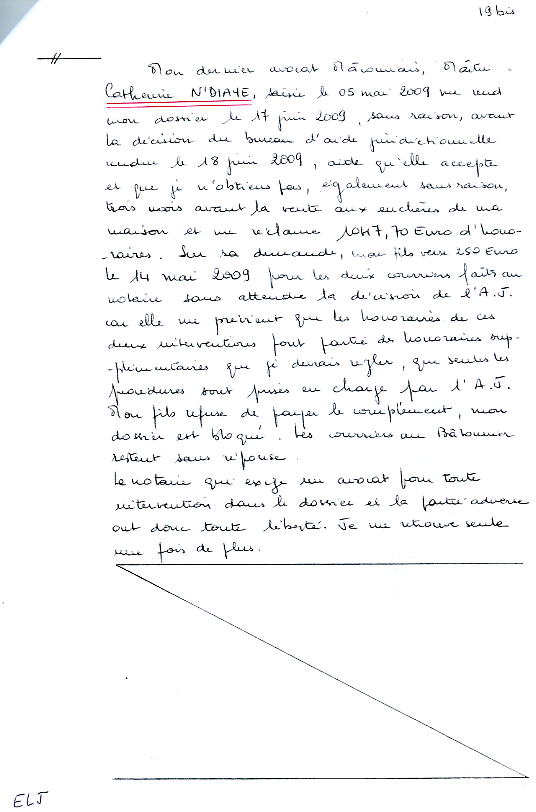 19 bis
Mon dernier avocat Mâconnais, Maître
Catherine N'DIAYE, saisie le 05 mai 2009 me rend
mon dossier le 17 juin 2009, sans raison, avant
la décision du bureau d'aide juridictionnelle
rendue le 18 juin 2009, aide qu'elle accepte
et que je n'obtiens pas, également sans raison,
trois mois avant la vente aux enchères de ma
maison et me réclame 1047,70 Euro d'hono-
-raires. Sur sa demande, mon fils verse 250 Euro
le 14 mai 2009 pour les deux courriers faits au
notaire sans attendre la décision de l'A.J.
car elle me prévient que les honoraires de ces
deux interventions font partie de honoraires sup-
-plémentaires que je devrais régler, que seules les
procédures sont prises en charge par l'A.J.
Mon fils refuse de payer le complément, mon
dossier est bloqué. Les courriers au Bâtonnier
restent sans réponse.
Le notaire qui exige un avocat pour toute
intervention dans le dossier et la partie adverse
ont donc toute liberté. Je me retrouve seule
une fois de plus.
ELJ